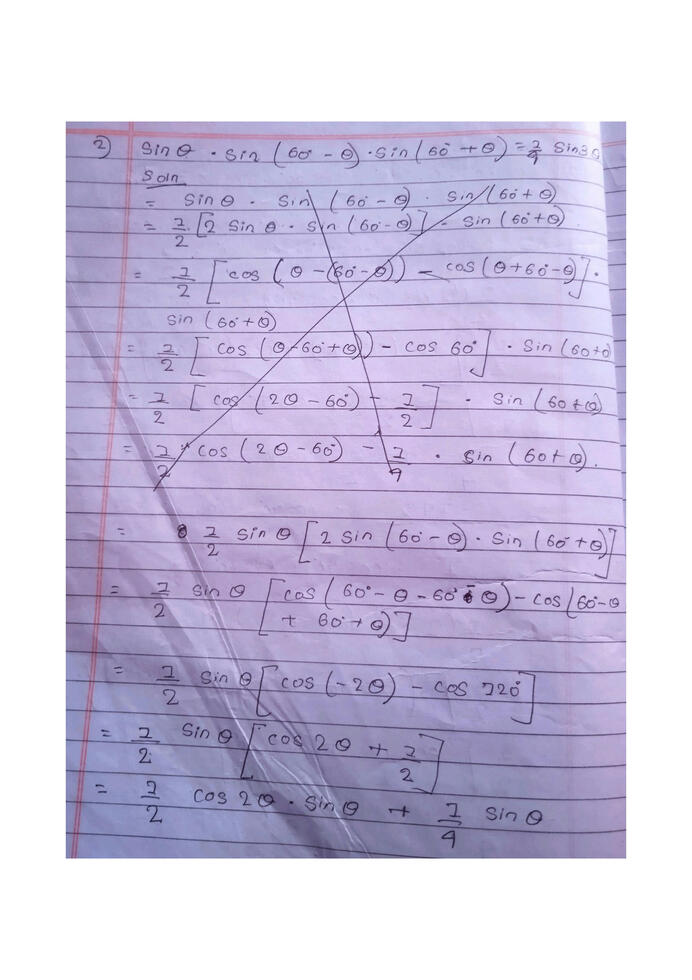 2) Sinθ · Sin (60° - θ) · Sin (60° + θ) = 1/4 Sin3θ
Soln
= Sinθ · Sin (60° - θ) · Sin (60° + θ)
= 1/2 [2 Sinθ · Sin (60° - θ)] · Sin (60° + θ)
= 1/2 [cos (θ - (60° - θ)) - cos (θ + 60° - θ)] ·
Sin (60 + θ)
= 1/2 [cos (θ - 60° + θ)) - cos 60°] · Sin (60 + θ)
= 1/2 [cos (2θ - 60°) - 1/2] · Sin (60 + θ)
= 1/2 cos (2θ - 60°) - 1/4 · Sin (60 + θ).
= 1/2 sinθ [2 Sin (60° - θ) · Sin (60° + θ)]
= 1/2 sinθ [cos (60° - θ - 60° - θ) - cos (60° - θ
+ 60° + θ)]
= 1/2 sinθ [cos (-2θ) - cos 120°]
= 1/2 Sinθ [cos 2θ + 1/2]
= 1/2 cos 2θ · Sinθ + 1/4 Sinθ